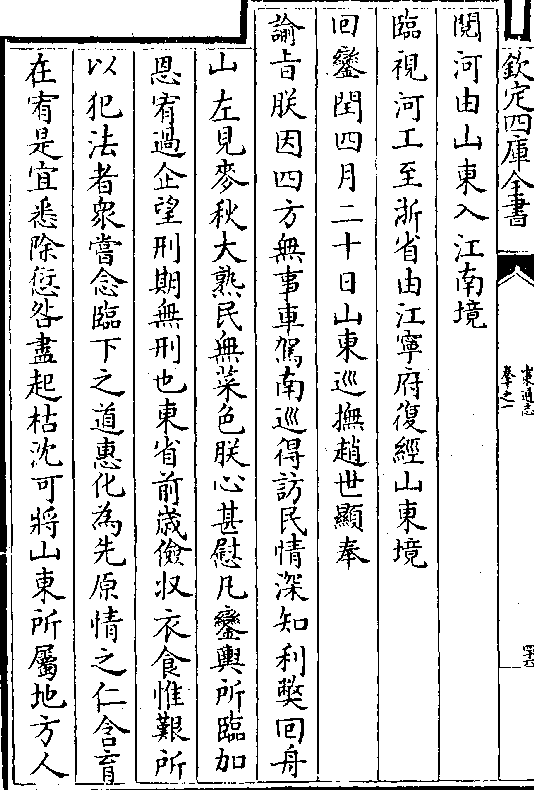 欽定四庫全書
閱河由山東入江南境
臨視河工至浙省由江寧府復經山東境
回鑾閏四月二十日山東巡撫趙世顯奉
諭旨朕因四方無事車駕南巡得訪民情深知利弊回舟
山左見麥秋大熟民無菜色朕心甚慰凡鑾輿所臨加
恩宥過企望刑期無刑也東省前歲儉收衣食惟艱所
以犯法者衆當念臨下之道惠化為先原情之仁含育
在宥是宜悉除愆咎盡起枯沈可將山東所屬地方人